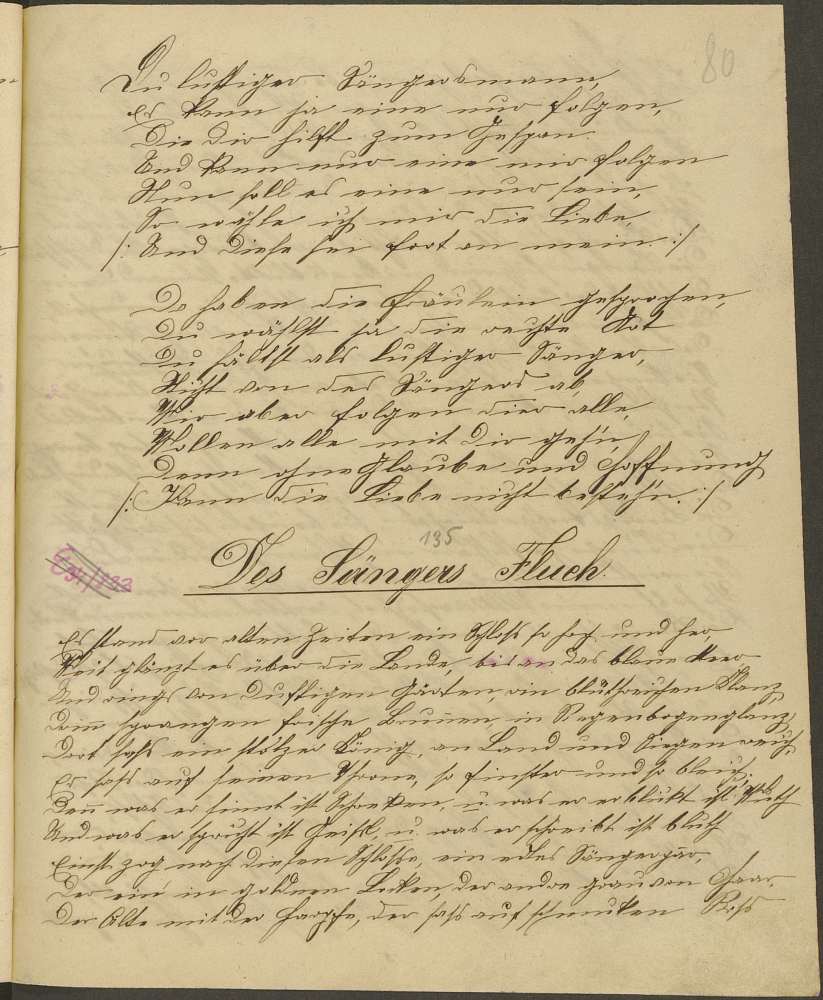 80
Du lustiger Sängersmann,
Es kann ja eine nur folgen,
Die dir hilft zum Gespan.
Und kann nur eine mir folgen
Nun soll es eine nur sein,
So wähle ich mir die Liebe,
/: Und diese sei fort an mein. :/
Da haben die Fräulein gesprochen,
Du wählst ja die rechte Art
Du hältst als lustiger Sänger,
Nicht von des Sängers ab,
Wir aber folgen dier alle,
Wollen alle mit dir gehn,
Denn ohne Glaube und Hoffnung
/: Kann die Liebe nicht bestehn. :/
135
Des Sängers Fluch.
Es stand vor alten Zeiten ein Schloß so hoch und her,
Weit glänzt es über die Lande, bis an das blaue Meer
Und rings von Duftigen Gärten, ein blüthreichen Kranz,
Drinn sprangen frische Brunnen, in Regenbogenglanz,
Dort saß ein stolzer König, an Land und Siegen reich,
Er saß auf seinen Throne, so finster und so bleich,
Denn was er sinnt ist Schrecken, u. was er erblickt ist Wuth
Und was er spricht ist Geißl, u. was er schreibt ist Bluth
Einst zog nach diesen Schlosse, ein edles Sängerpar,
Der ein in goldnen Locken, der andre grau von Haar.
Der Alte mit der Harpfe, der saß auf schmuken Roß